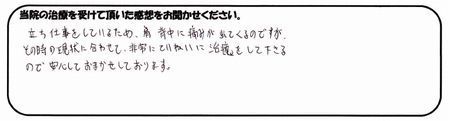 当院の治療を受けて頂いた感想をお聞かせください。
立ち仕事をしているため、肩 背中に痛みが出てくるのですが、
その時の現状に合わせて、非常にていねいに治療をして下さる
ので安心しておまかせしております。